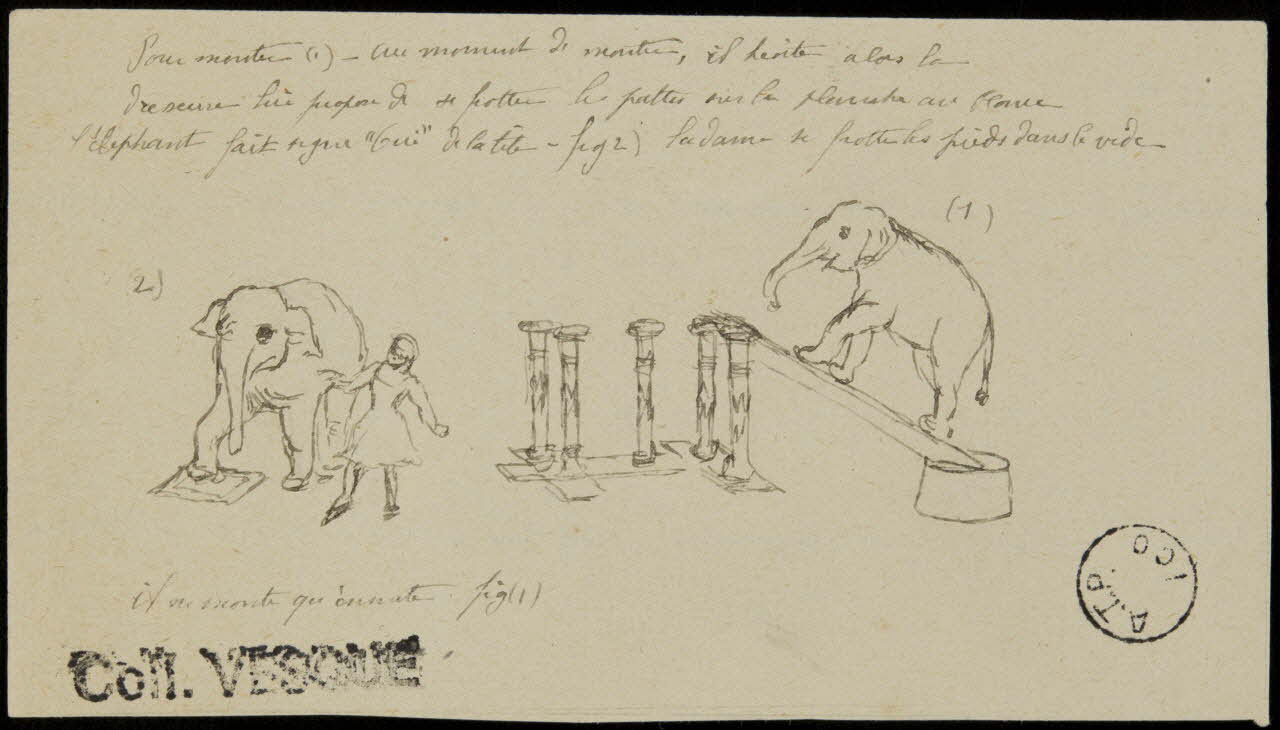 Pour monter (1) – au moment de monter, il hésite alors la
dresseuse lui propose de se frotter les pattes sur la planche au
l'Elephant fait signe "Oui" de la tête – fig 2) la dame se frotte les pieds dans le vide
(1)
2)
il ne monte qu'ensuite fig (1)
Coll. VESQUE
A.T.P.
ICO